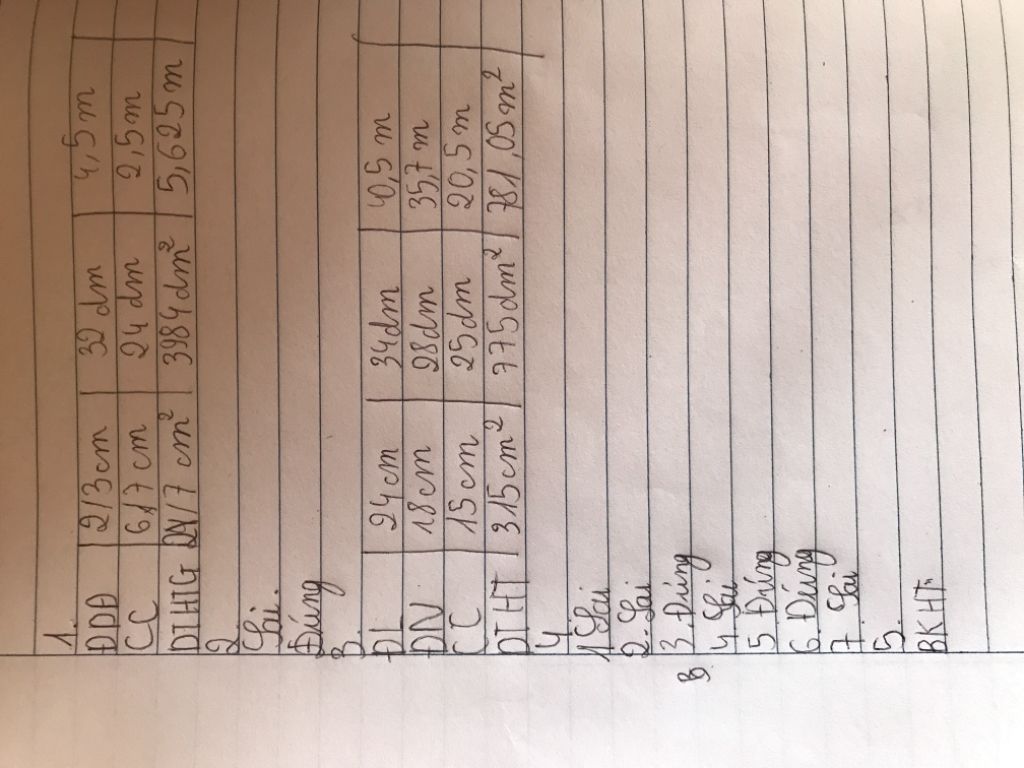 1.
ĐDĐ 2/3cm 32 dm 4,5m
CC 6/7 cm 24 dm 2,5m
DTHIG /7 cm² 3984dm² 5,625m
2
Sai.
Đúng
3
ĐL 24cm 34dm 40,5m
ĐN 18cm 28dm 35,7m
CC 15cm 25dm 20,5m
DTHT 315cm² 775dm² 781,05m²
4
1 Sai
2. Sai
3. Đúng
4 Sai
5. Đúng
6. Đúng
7. Sai
5.
BKHT: